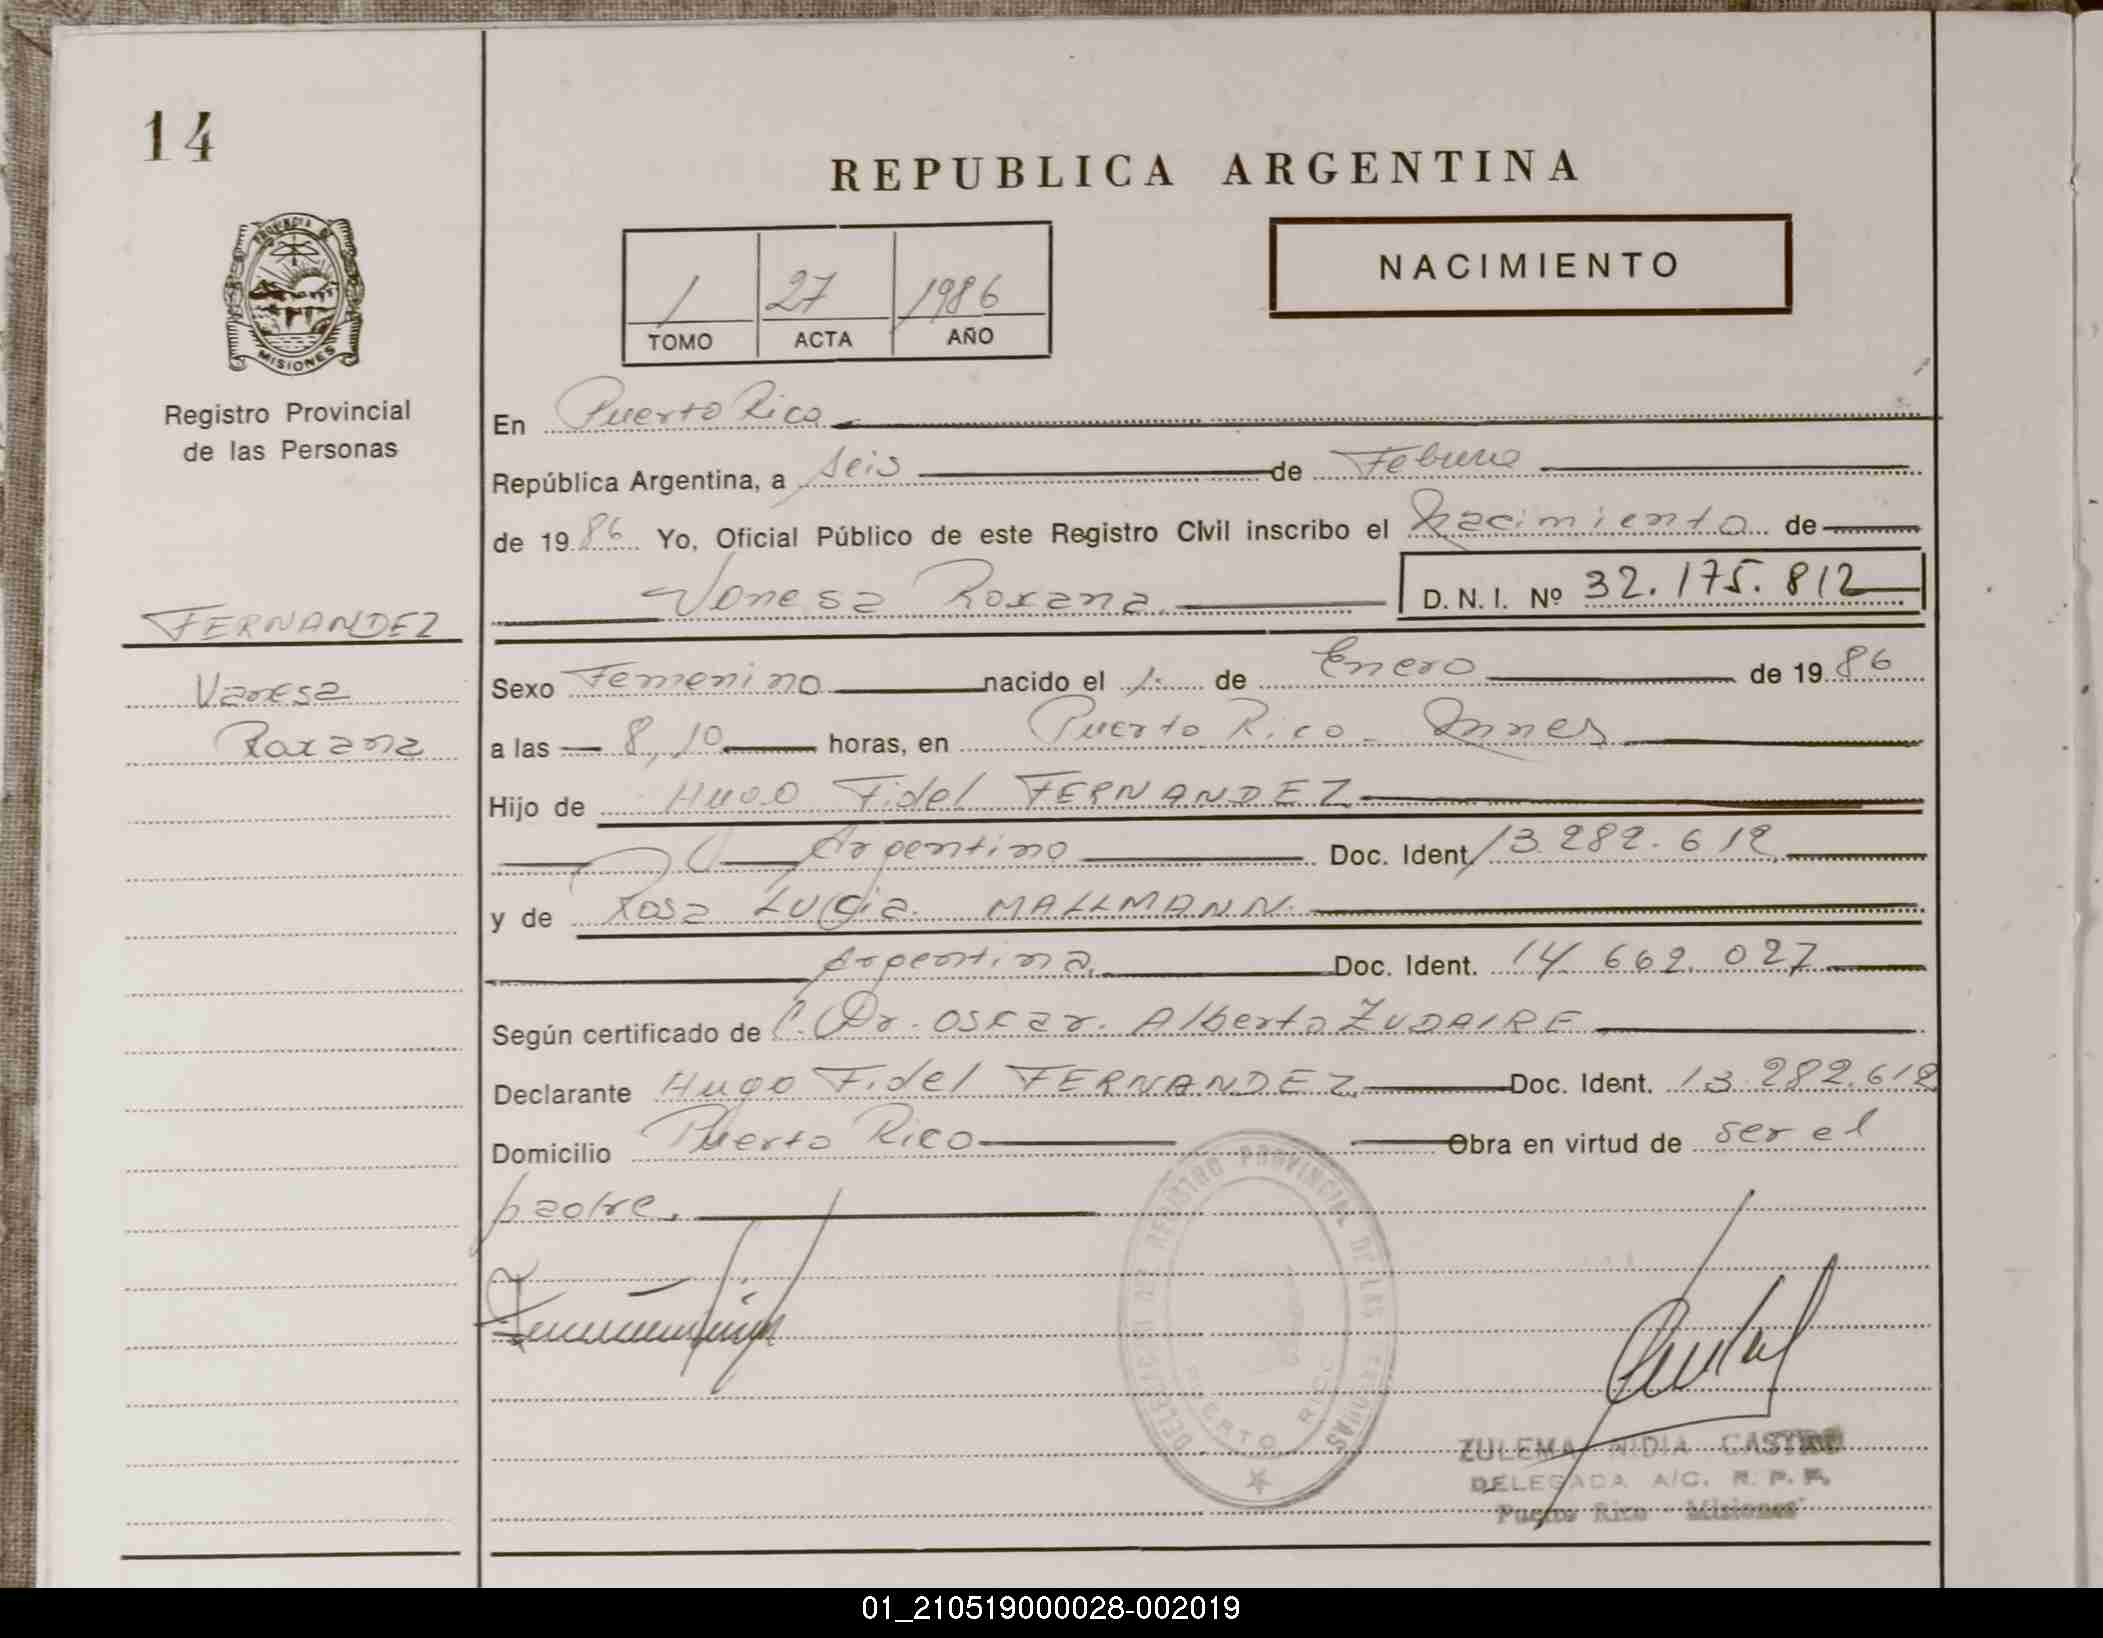 14
REPUBLICA ARGENTINA
PROVINCIA DE
MISIONES
Registro Provincial
de las Personas
1 27 1986
TOMO ACTA AÑO
NACIMIENTO
En Puerto Rico
República Argentina, a seis de Febrero
de 1986 Yo, Oficial Público de este Registro Civil inscribo el Nacimiento de
Vanesa Roxana D. N. I. Nº 32.175.812
FERNANDEZ
Vanesa
Roxana
Sexo Femenino nacido el 1: de Enero de 1986
a las 8,10 horas, en Puerto Rico - Mnes
Hijo de Hugo Fidel FERNANDEZ
Argentino Doc. Ident. 13.282.612
y de Rosa Lucia MALLMANN
Argentina Doc. Ident. 14.662.027
Según certificado de Dr. Oscar Alberto ZUDAIRE
Declarante Hugo Fidel FERNANDEZ Doc. Ident. 13.282.612
Domicilio Puerto Rico Obra en virtud de ser el
padre.
DELEGACION REGISTRO PROVINCIAL DE LAS PERSONAS
PUERTO RICO
ZULEMA NIDIA CASTRO
DELEGADA A/C. R. P. P.
Puerto Rico - Misiones
01_210519000028-002019